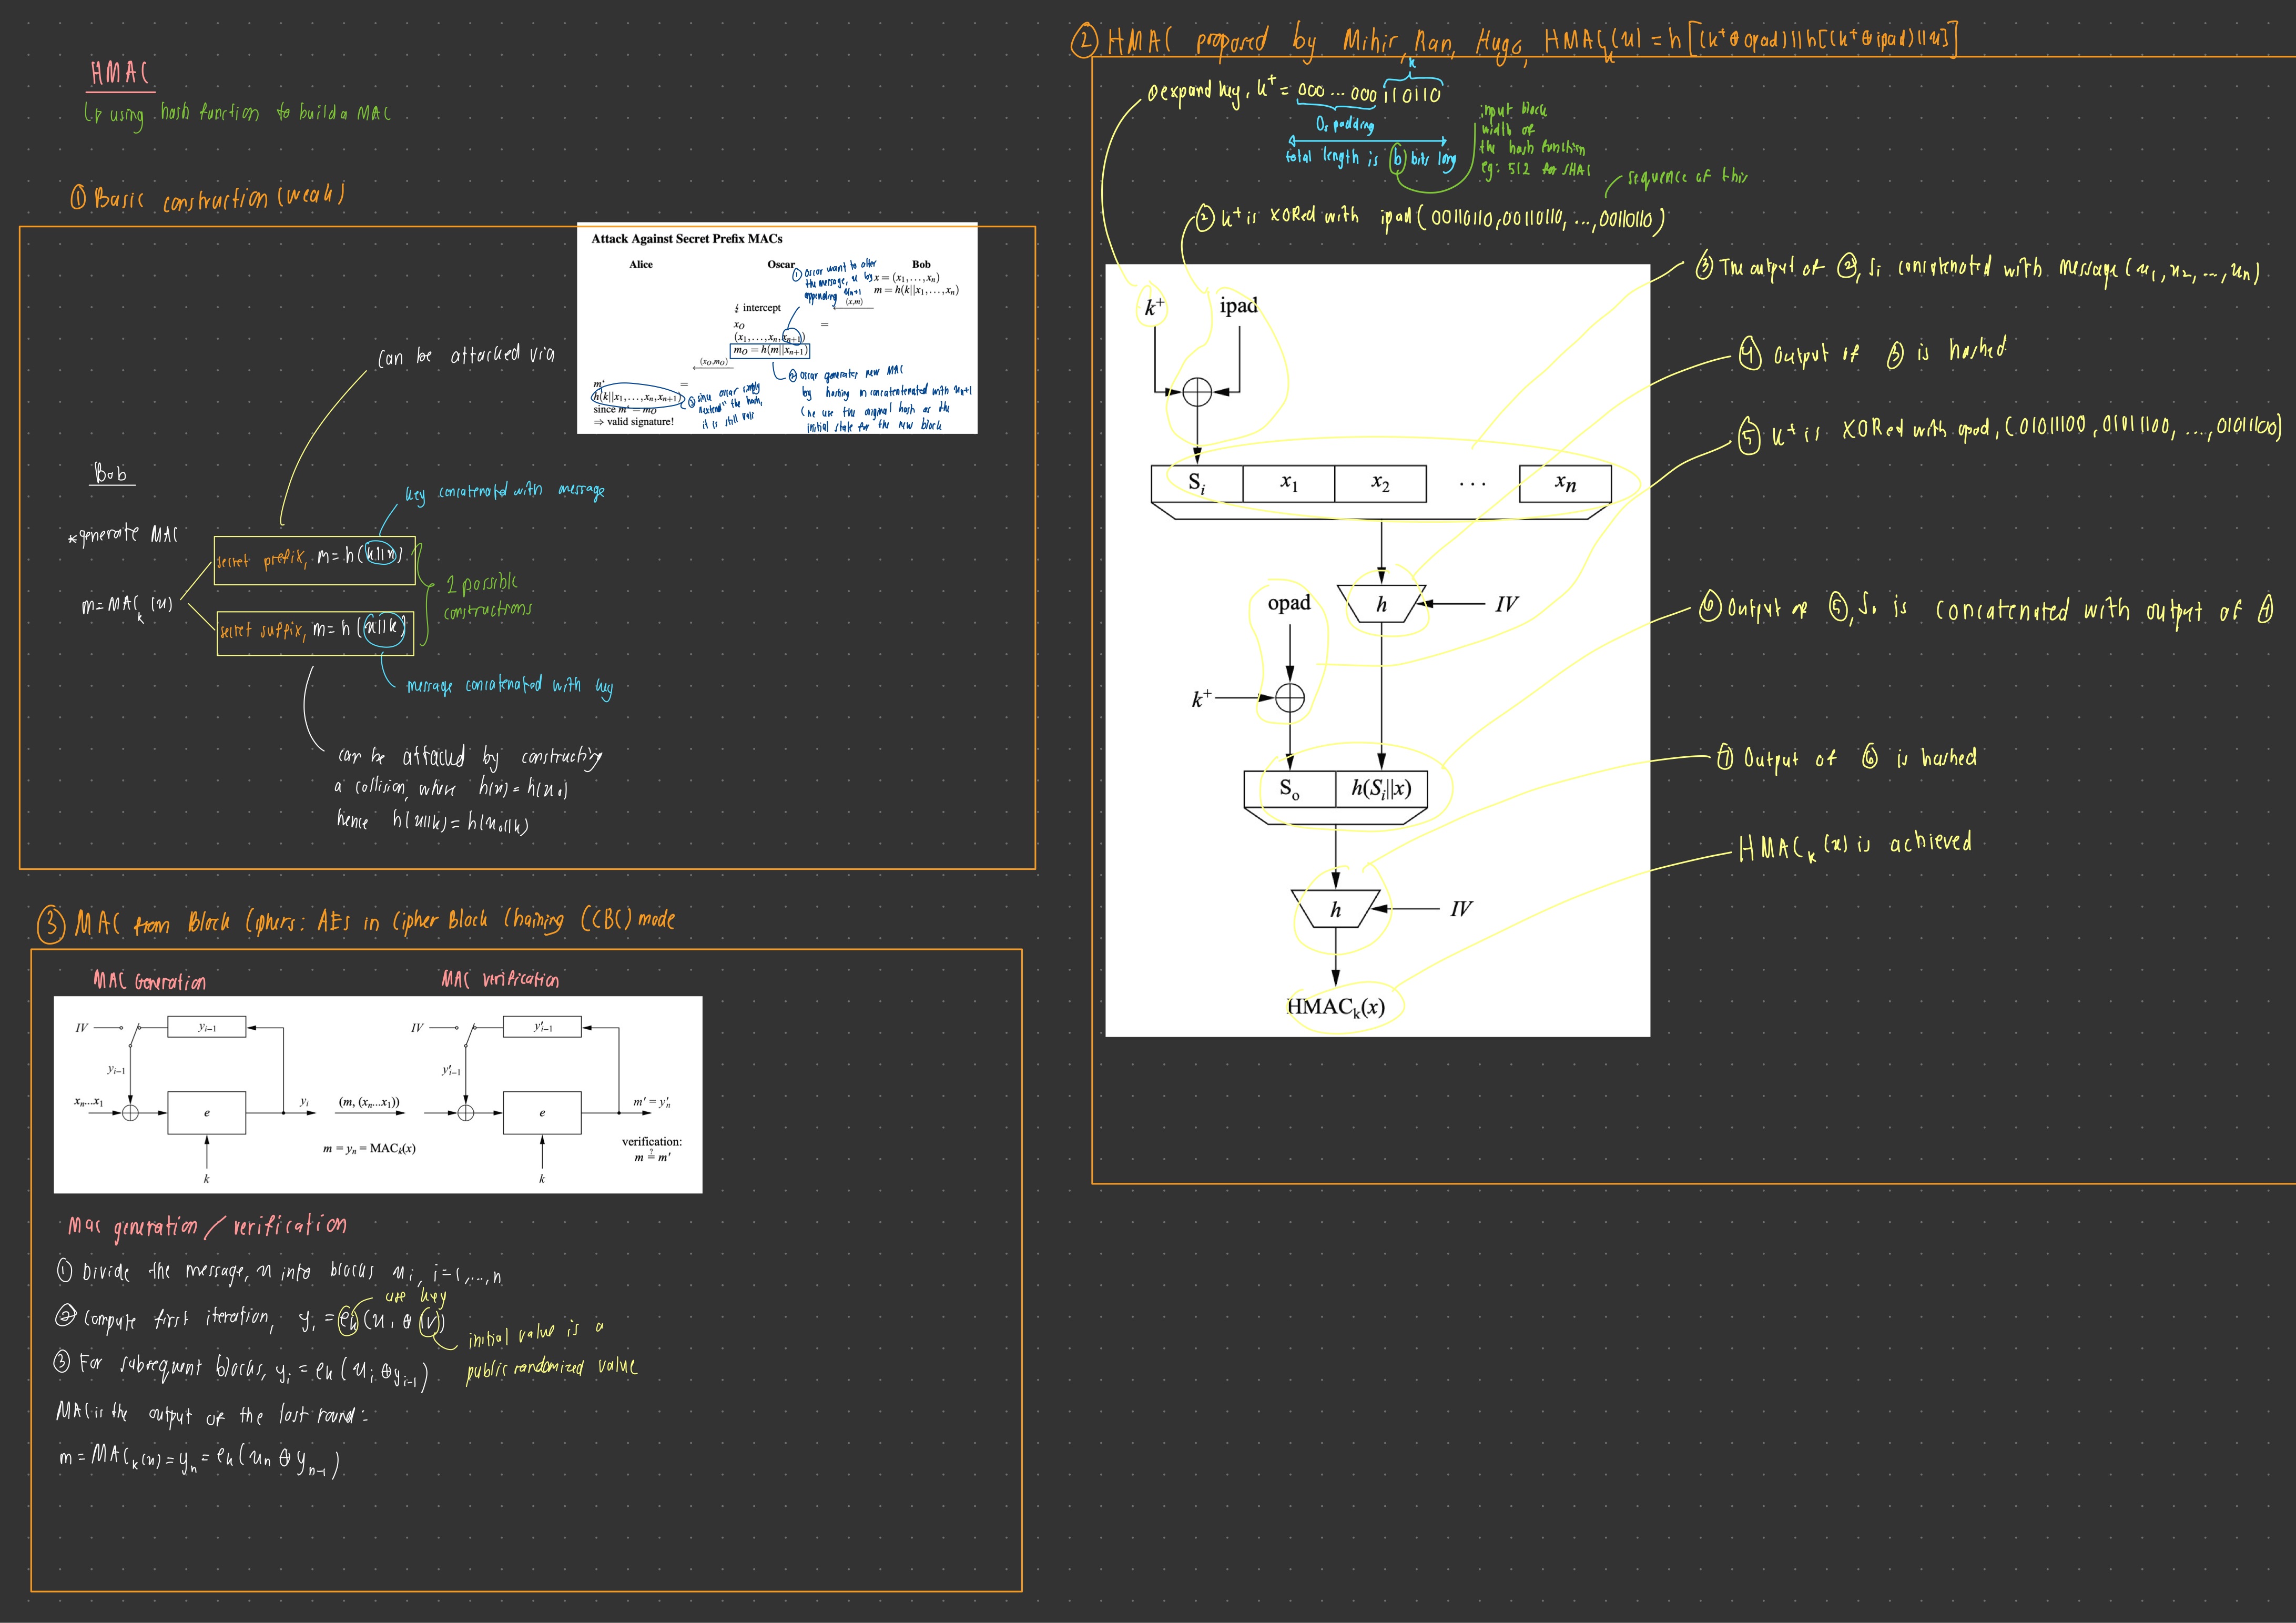 HMAC
↳ using hash function to build a MAC
① Basic construction (weak)
Attack Against Secret Prefix MACs
Alice Oscar Bob
① Oscar want to alter
the message, x by
appending xn+1
x = (x1,...,xn)
m = h(k||x1,...,xn)
(x,m)
intercept
xO =
(x1,...,xn,xn+1)
mO = h(m||xn+1)
(xO,mO)
② Oscar generates new MAC
by hashing m concatentenated with xn+1
(he use the original hash as the
initial state for the new block
m' =
h(k||x1,...,xn,xn+1)
since m' = mO
⇒ valid signature!
③ since oscar simply
"extend" the hash,
it is still valid
can be attacked via
Bob
*generate MAC
m = MACk (x)
key concatenated with message
secret prefix, m = h (k||x)
2 possible
constructions
secret suffix, m = h (x||k)
message concatenated with key
can be attacked by constructing
a collision, where h(x) = h(xo)
hence h(x||k) = h(xo||k)
② HMAC proposed by Mihir, Ran, Hugo, HMACk(x) = h[(k+⊕opad)||h[(k+⊕ipad)||x]]
k
① expand key, k+ = 000 ... 000 110110
0s padding
total length is b bits long
input block
width of
the hash function
eg: 512 for SHA1
sequence of this
② k+ is XORed with ipad (00110110,00110110, ...,00110110)
③ The output of ②, Si concatenated with message (x1, x2, ..., xn)
④ Output of ③ is hashed
⑤ k+ is XORed with opad, (01011100, 01011100, ..., 01011100)
⑥ Output of ⑤, So is concatenated with output of ④
⑦ Output of ⑥ is hashed
HMACk (x) is achieved
k+ ipad
Si x1 x2 ... xn
h IV
opad
k+
So h(Si||x)
h IV
HMACk(x)
③ MAC from Block Ciphers: AES in Cipher Block Chaining (CBC) mode
MAC Generation MAC verification
IV yi−1 IV y'i−1
yi−1 y'i−1
xn...x1 e yi (m, (xn...x1)) e m' = y'n
m = yn = MACk(x)
verification:
m ≟ m'
k k
Mac generation / verification
① Divide the message, x into blocks xi, i=1,...,n
use key
② Compute first iteration, y1 = ek (x1 ⊕ IV)
initial value is a
public randomized value
③ For subsequent blocks, yi = ek (xi ⊕ yi-1)
MAC is the output of the last round:
m = MACk(x) = yn = ek (xn ⊕ yn-1)